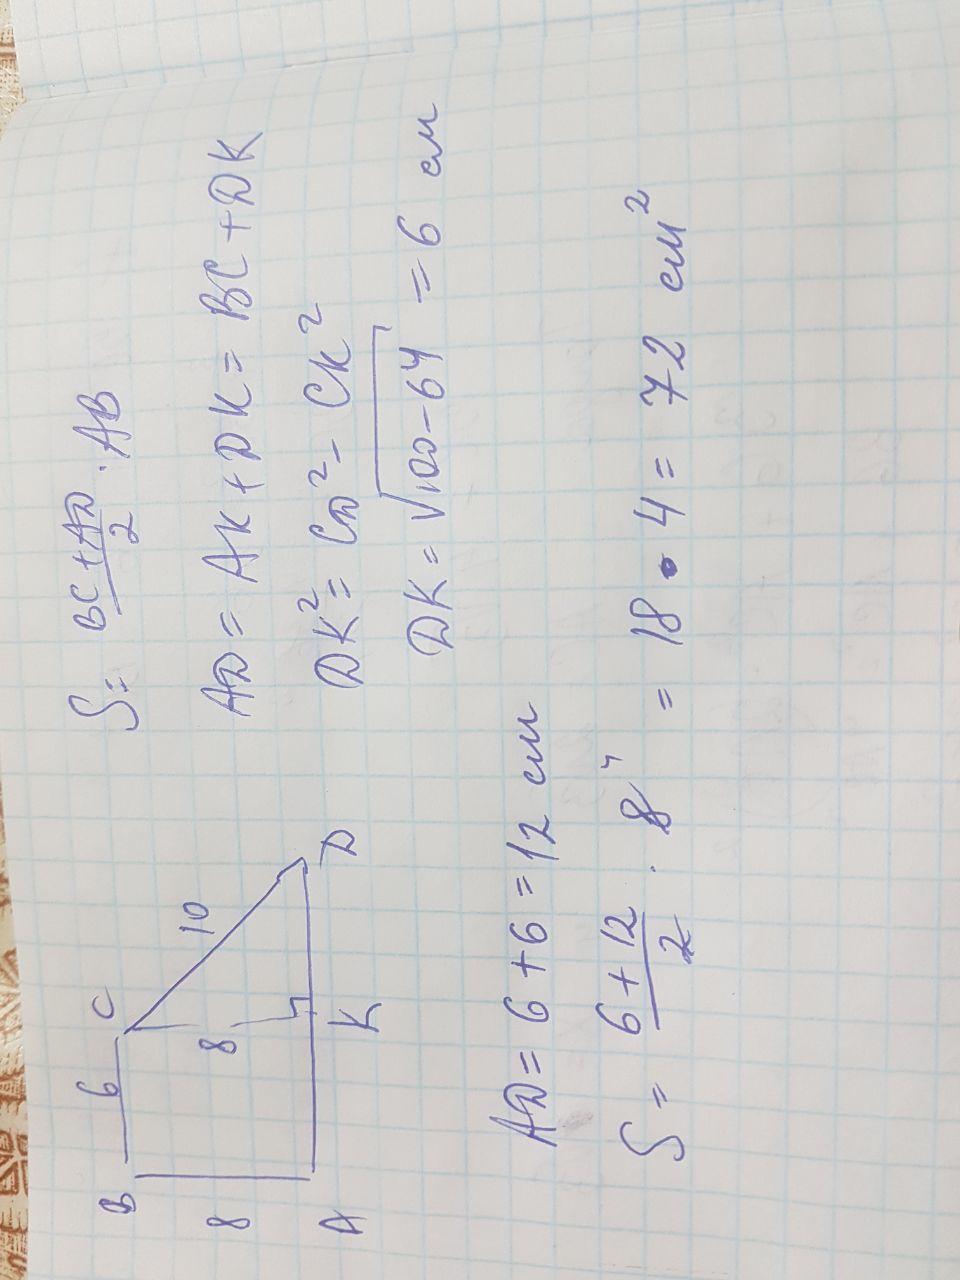 B 6 C
8 8 10
A K D
S = (BC + AD)/2 · AB
AD = AK + DK = BC + DK
DK² = CD² - CK²
DK = √100-64 = 6 см
AD = 6 + 6 = 12 см
S = (6 + 12)/2 · 8 4 = 18 · 4 = 72 см²